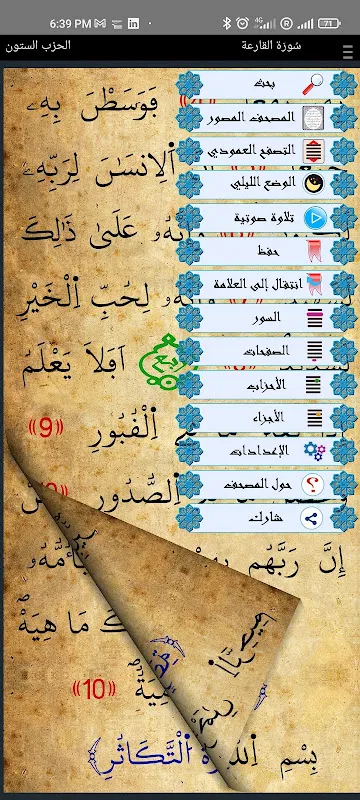 6:39 PM 4G 71
سُورَة القارعة الحزب الستون
بحث
المصحف المصور
التصفح العمودي
الوضع الليلي
تلاوة صوتية
حفظ
انتقال إلى العلامة
السور
الصفحات
الأحزاب
الأجزاء
الإعدادات
حول المصحف
شارك
فَوَسَطْنَ بِهِۦ
اَ۬لِانسَٰنَ لِرَبِّهِۦ
عَلَىٰ ذَٰلِكَ
لِحُبِّ اِ۬لْخَيْرِ
ربع اَفَلَا يَعْلَمُ
اِ۬لْقُبُورِ ((9))
اِ۬لصُّدُورِ
إِنَّ رَبَّهُم
فَأُمُّهُۥ
مَا هِيَهْ
((10))
بِسْمِ اَ۬لتَّكَاثُرِ